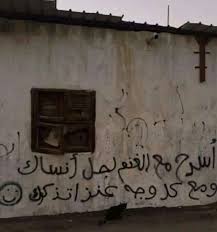 أسرح مع الغنم لجل أنساك
ومع كل وجه عنز اتذكرك